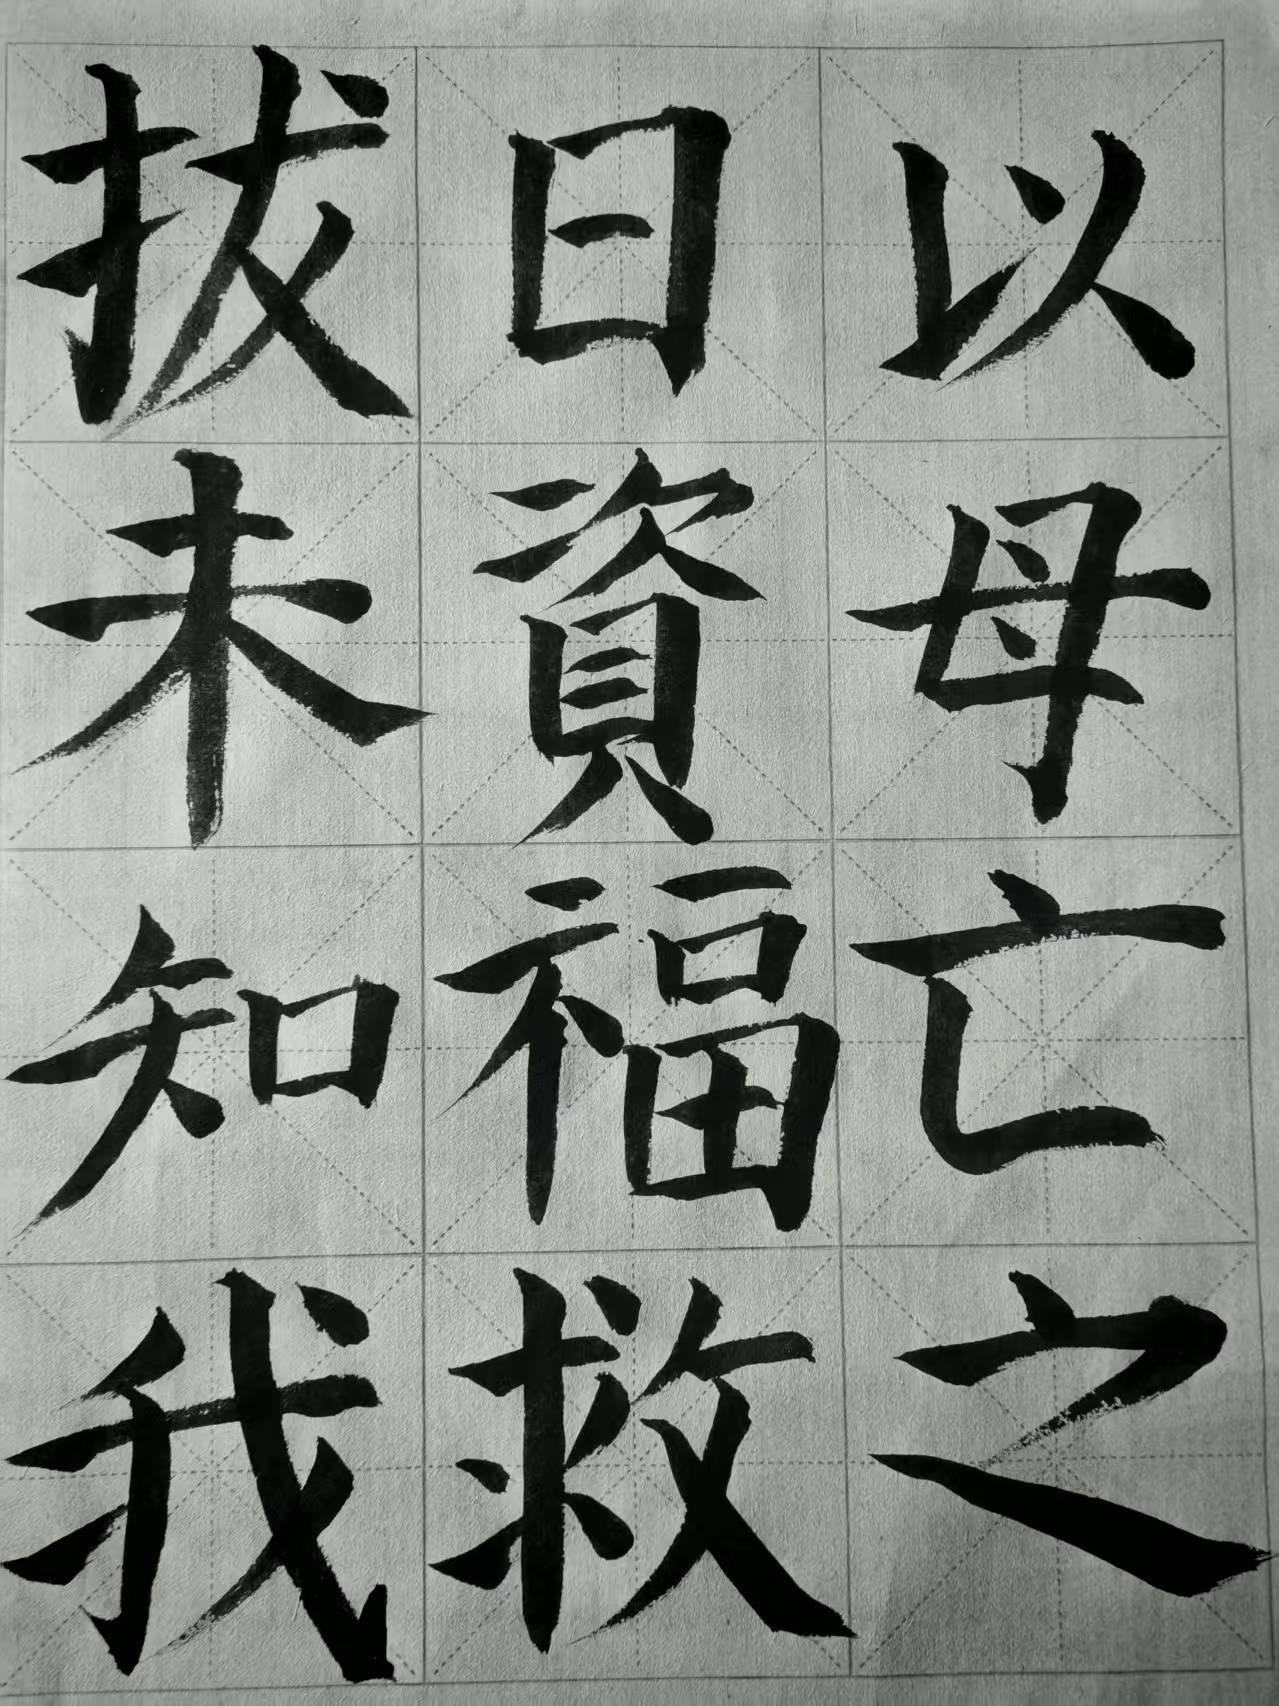 以母亡之
日資福救
拔未知我